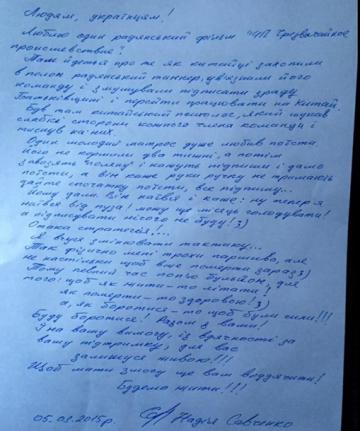 Людям, українцям!
Люблю один радянський фільм "ЧП Чрезвычайное
происшествие".
Там йдеться про те як китайці захопили
в полон радянський танкер, ув'язнили його
команду і змушували підписати зраду
Батьківщині і перейти працювати на Китай.
Був там китайський психолог, який шукав
слабкі сторони кожного члена команди і
тиснув на них.
Один молодий матрос дуже любив поїсти.
його не кормили два тижні, а потім
завозять їжу і кажуть підпиши і дамо
поїсти, а він каже руки ручку не тримають
дайте спочатку поїсти, все підпишу...
йому дали він наївся і каже: ну тепер я
наївся від пуза і можу ще місяць голодувати!
а підписувати нічого не буду! :)
Отака стратегія:...
Я вмію змінювати тактику...
Так фізично мені трохи паршиво, але
не настільки щоб вже померти зараз :)
Тому певний час поп'ю бульйон, для
того: щоб як жити - то літати!,
як померти - то здоровою! :)
а, як боротися - то щоб були сили!!!
Буду боротися! Разом з вами!
І на вашу вимогу, із вдячності за
вашу підтримку, для вас
залишуся живою!!!
Щоб мати змогу ще вам віддячити!
Будемо жити!!!
05.03.2015р. Надія Савченко